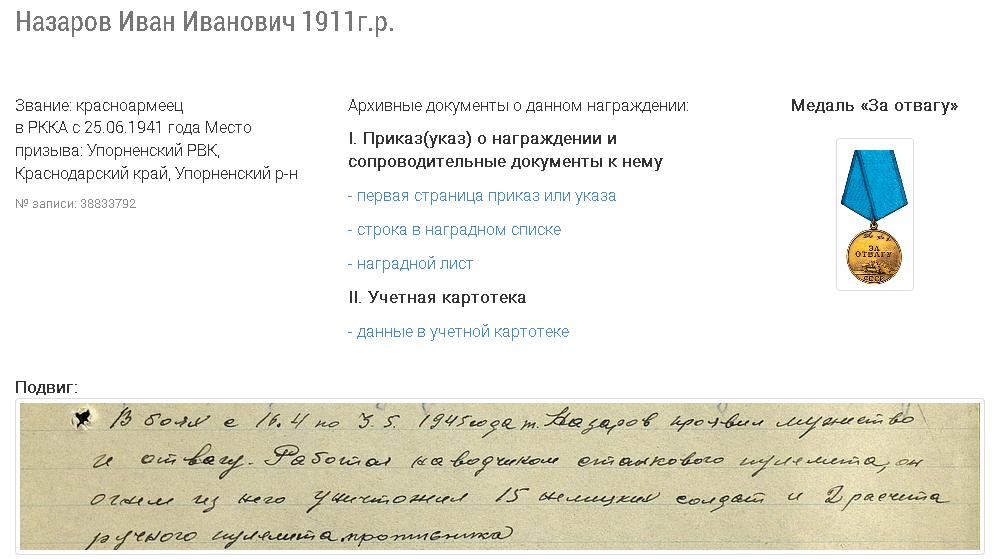 Назаров Иван Иванович 1911г.р.
Звание: красноармеец
в РККА с 25.06.1941 года Место
призыва: Упорненский РВК,
Краснодарский край, Упорненский р-н
№ записи: 38833792
Архивные документы о данном награждении:
I. Приказ(указ) о награждении и
сопроводительные документы к нему
- первая страница приказ или указа
- строка в наградном списке
- наградной лист
II. Учетная картотека
- данные в учетной картотеке
Медаль «За отвагу»
ЗА
ОТВАГУ
СССР
Подвиг:
В боях с 16.4 по 3.5. 1945года т. Назаров проявил мужество
и отвагу. Работая наводчиком станкового пулемета, он
огнем из него уничтожил 15 немецких солдат и 2 расчета
ручного пулемета противника